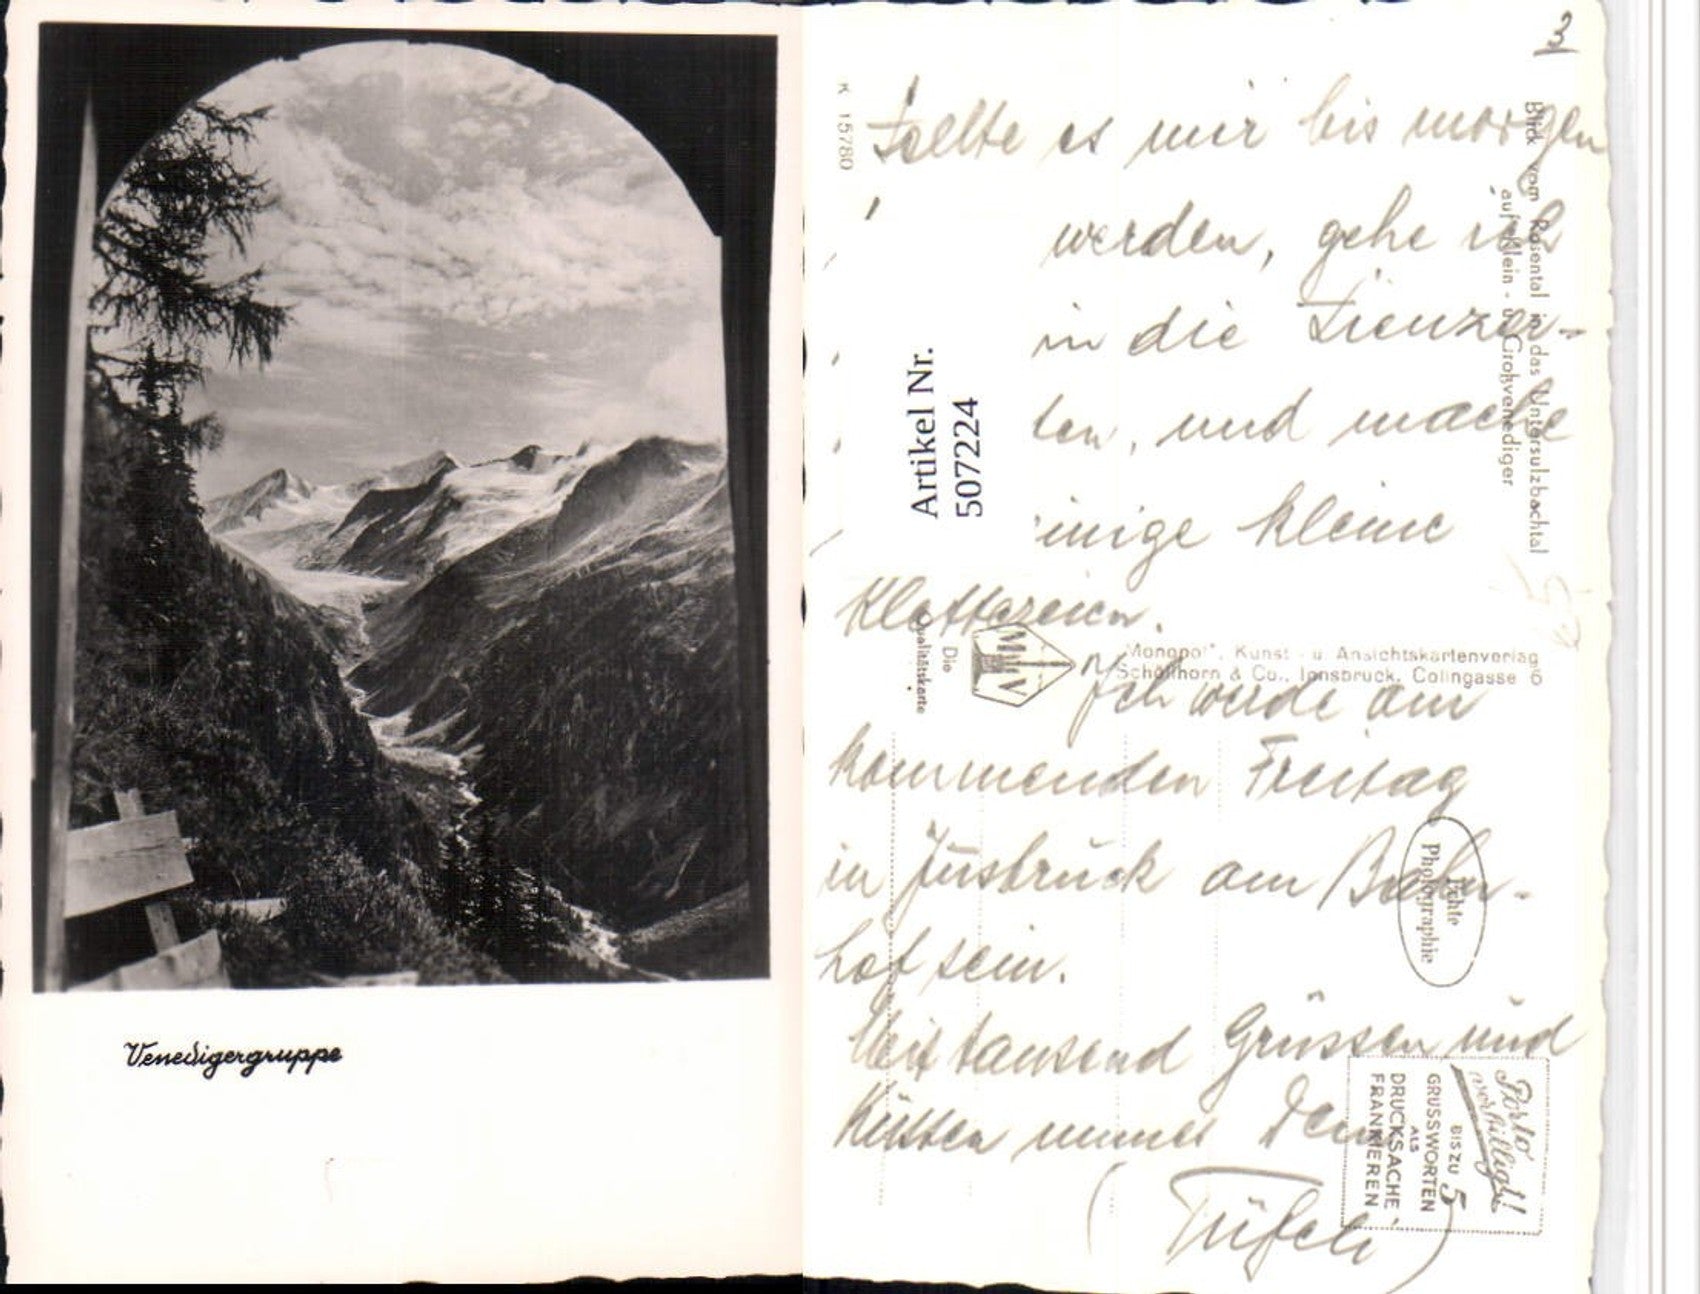 Venedigergruppe
3
K 15780
Sollte es mir bis morgen
werden, gehe ich
in die Lienzer-
ten, und mache
einige kleine
Klettereien.
Ich werde am
kommenden Freitag
in Insbruck am Bahn-
hof sein.
Mit tausend Grüssen und
Küssen immer Dein
(
)
Artikel Nr.
507224
Blick vom Rosental in das Untersulzbachtal
auf Klein - u. Großvenediger
Die
Qualitätskarte
"Monopol", Kunst - u. Ansichtskartenverlag
Schöllhorn & Co., Innsbruck, Colingasse 6
Echte
Photographie
Porto
verbilligt!
BIS ZU 5
GRUSSWORTEN
ALS
DRUCKSACHE
FRANKIEREN